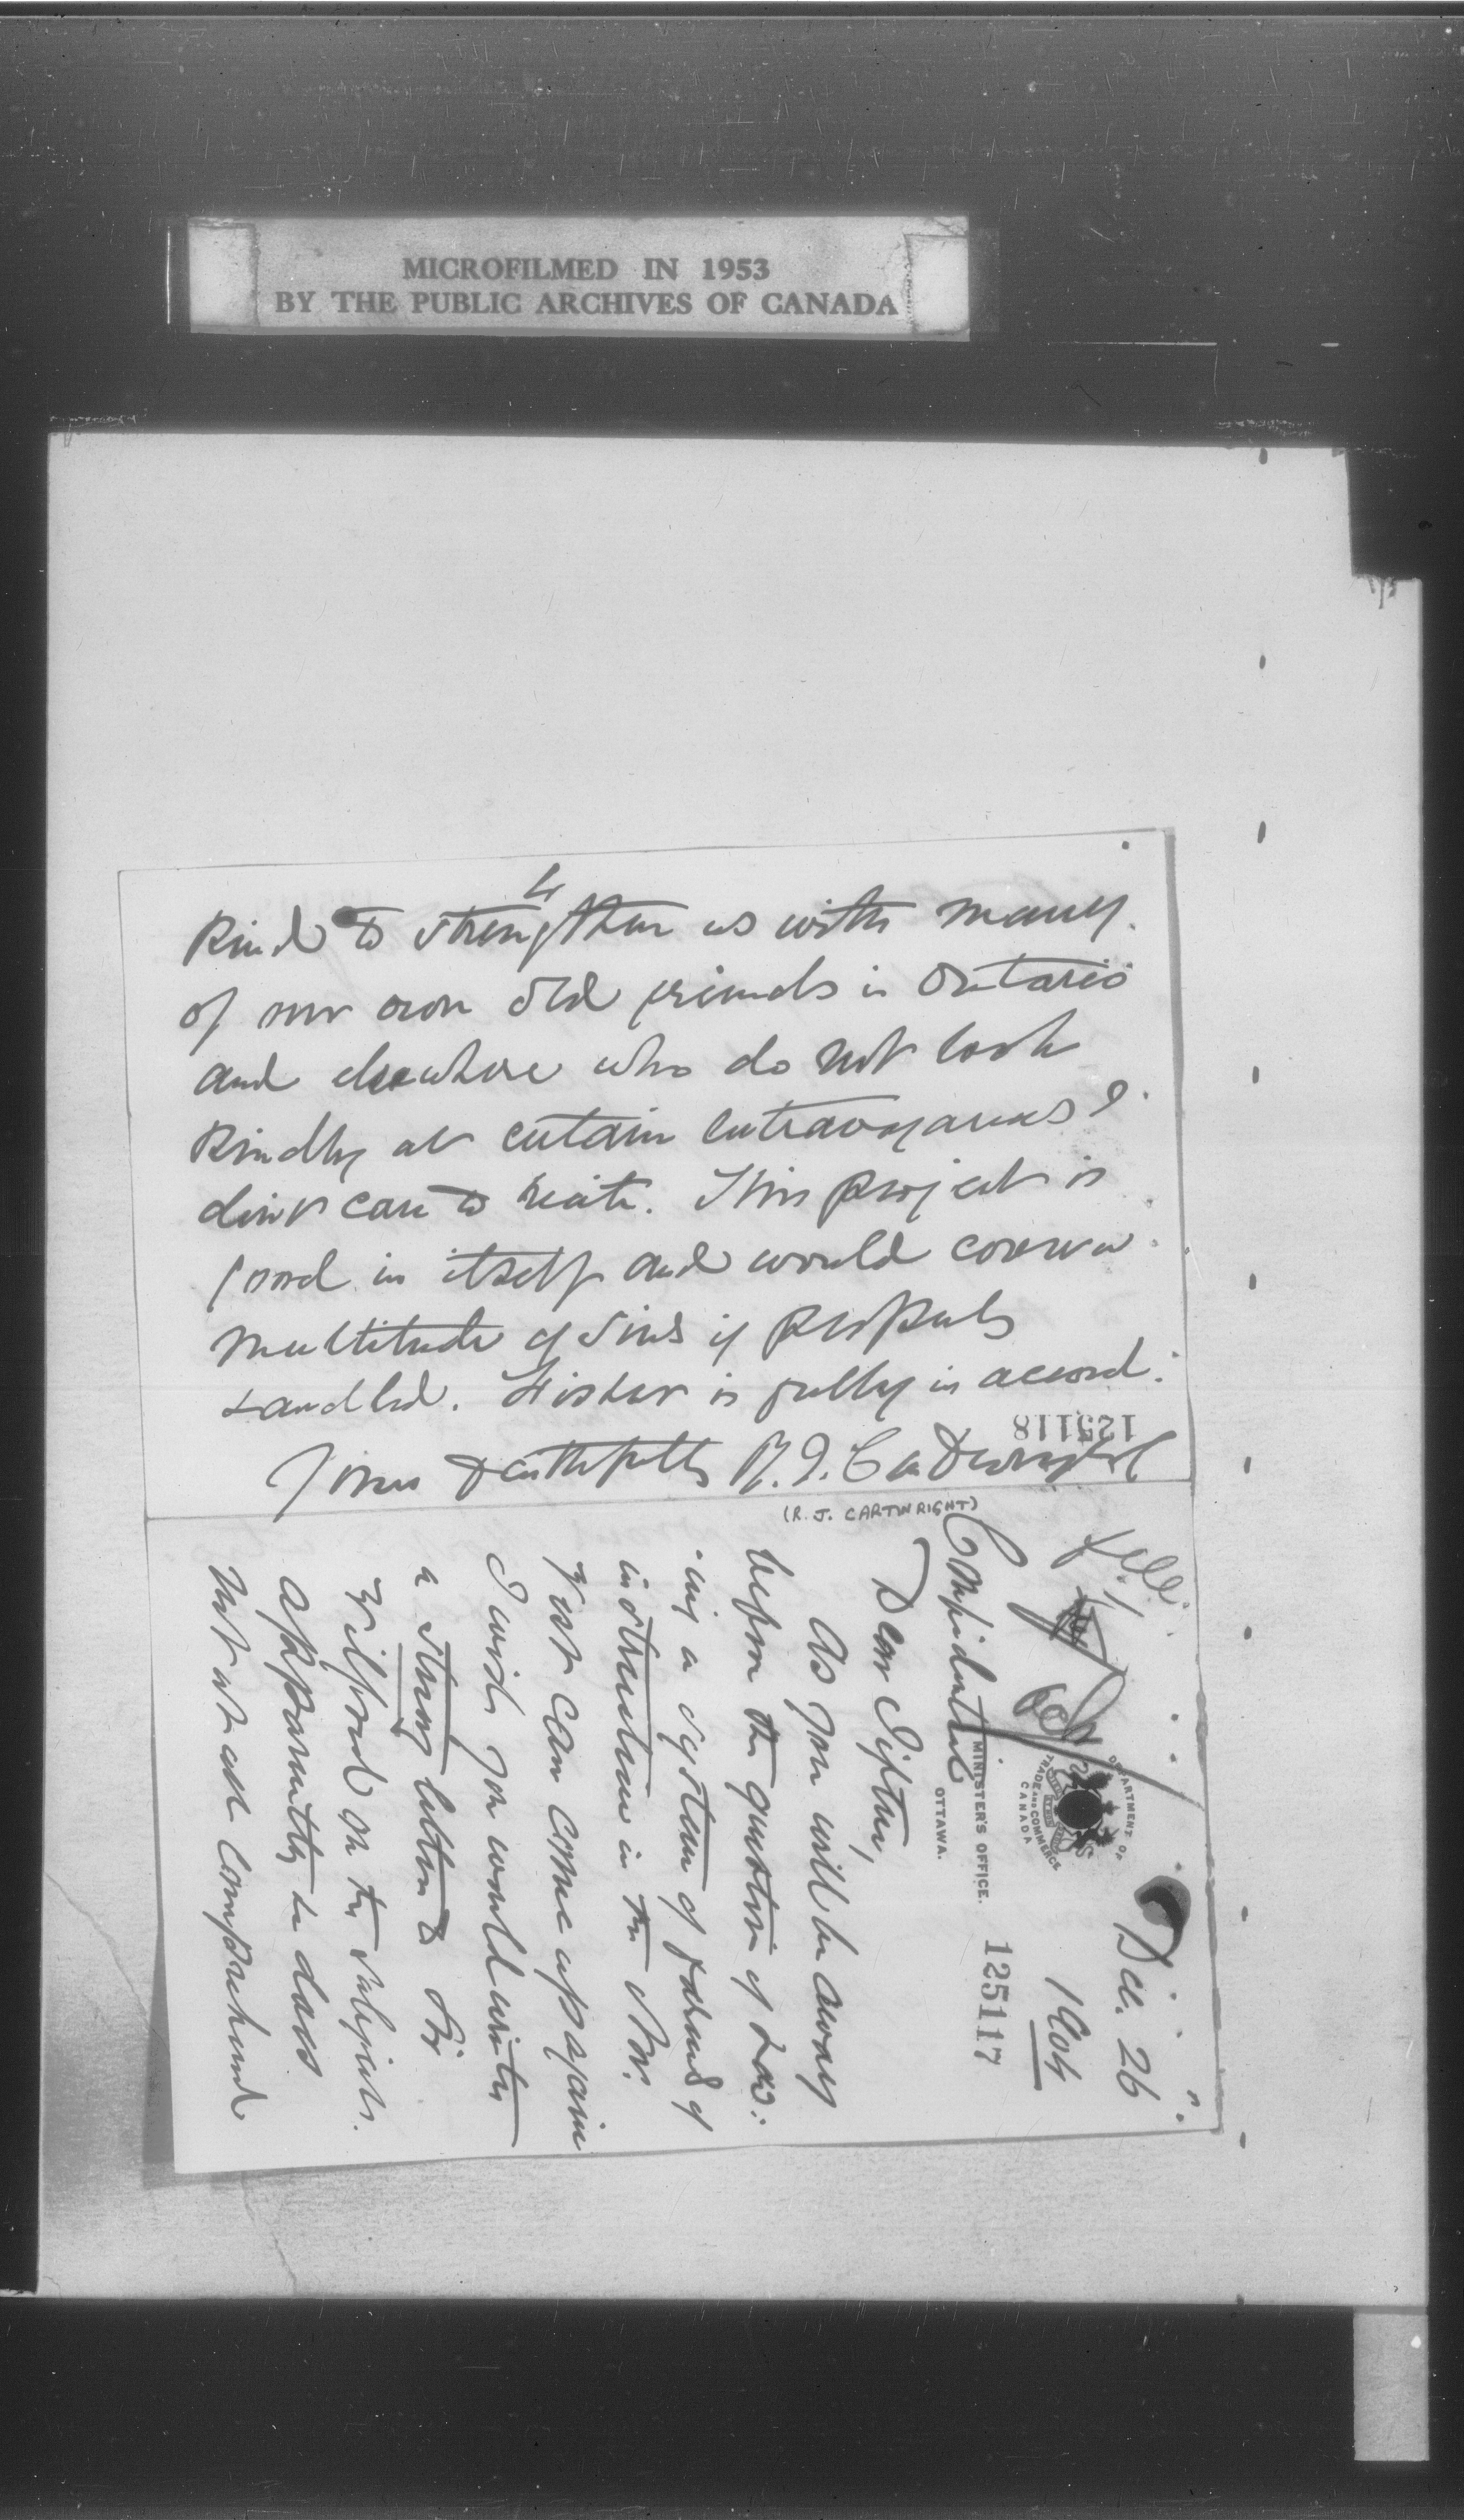 MICROFILMED IN 1953
BY THE PUBLIC ARCHIVES OF CANADA
4
kind to strengthen us with many
of our own old friends in Ontario
and elsewhere who do not look
kindly at certain extravagances I
don't care to recite. This project is
good in itself and would cover a
multitude of sins if properly
handled. Fisher is fully in accord.
125118
Yours faithfully R. J. Cartwright
(R. J. CARTWRIGHT)
file
DEPARTMENT OF
TRADE AND COMMERCE
CANADA
Dec. 26
1904
MINISTER'S OFFICE.
OTTAWA.
125117
Confidential
Dear Sifton,
As you will be away
before the question of
ing a system of of
instruction in the
first can come up again
I wish you would write
a strong letter to Sir
Wilfrid on the subject.
Apparently he does
not at all comprehend